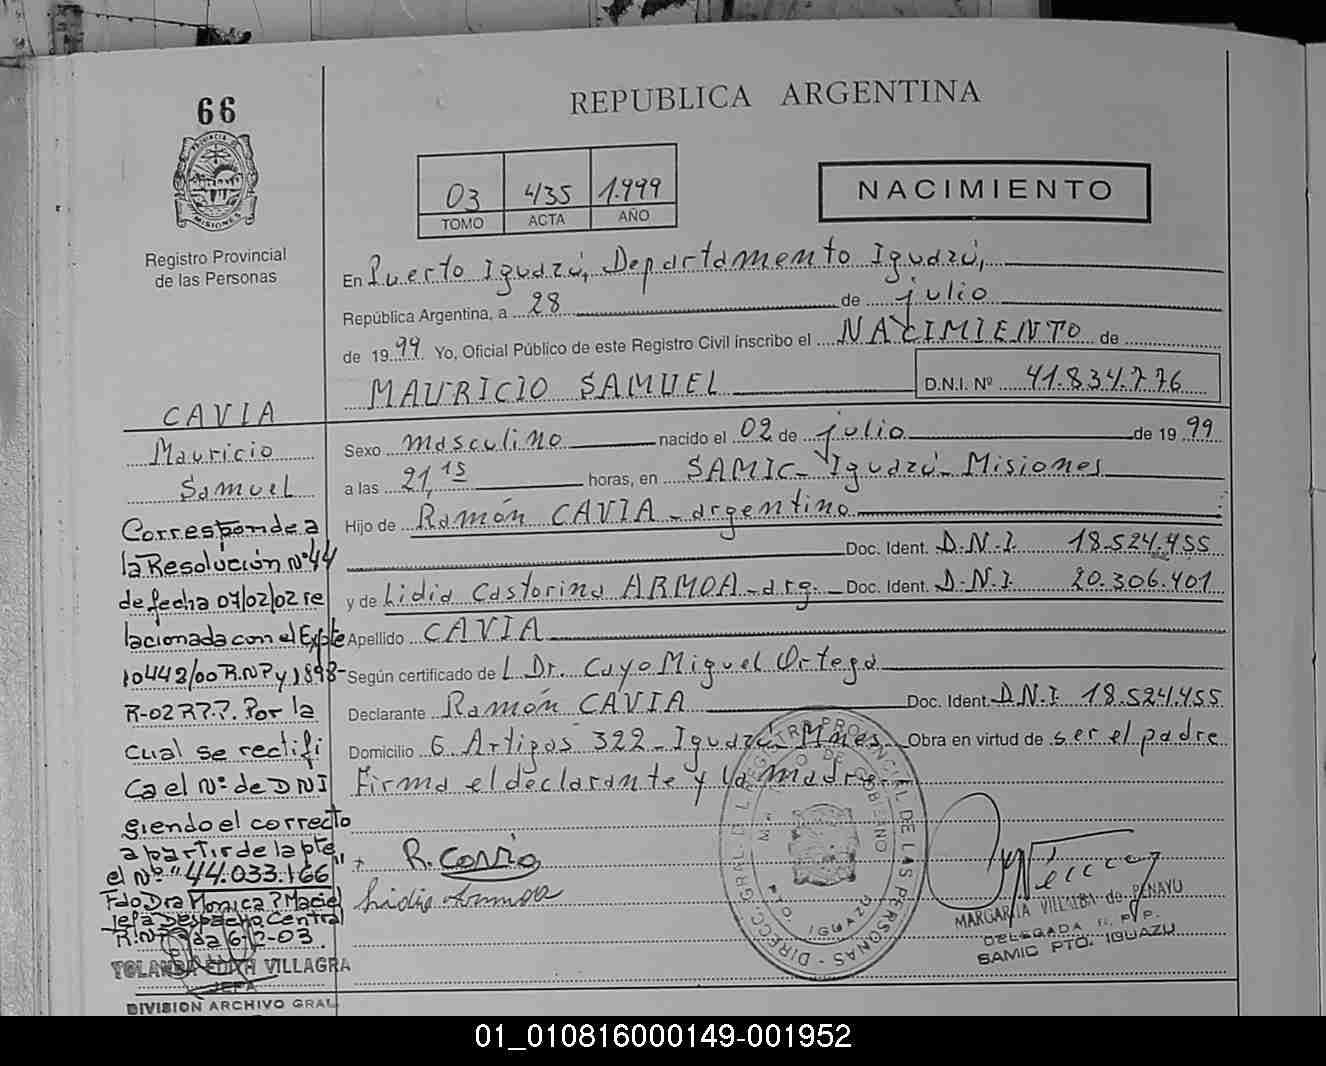 66
REPUBLICA ARGENTINA
PROVINCIA DE
MISIONES
Registro Provincial
de las Personas
03 435 1.999
TOMO ACTA AÑO
NACIMIENTO
En Puerto Iguazú, Departamento Iguazú,
República Argentina, a 28 de julio
de 19 99 Yo, Oficial Público de este Registro Civil inscribo el NACIMIENTO de
MAURICIO SAMUEL D.N.I. Nº 41.834.776
Sexo masculino nacido el 02 de julio de 19 99
a las 21,15 horas, en SAMIC_ Iguazú_ Misiones
Hijo de Ramón CAVIA_argentino
Doc. Ident. D.N.I. 18.524.455
y de Lidia Castorina ARMOA_arg. Doc. Ident. D.N.I. 20.306.401
Apellido CAVIA
Según certificado de Dr. Cayo Miguel Ortega
Declarante Ramón CAVIA Doc. Ident. D.N.I 18.524.455
Domicilio G Artigas 322_Iguazú_Mnes. Obra en virtud de ser el padre
Firma el declarante y la madre
CAVIA
Mauricio
Samuel
Corresponde a
la Resolución Nº44
de fecha 07/02/02 re
lacionada con el Expte
10443/00 R.NP y 1898-
R-02 Por la
cual se rectifi
Ca el Nº de DNI
siendo el correcto
a partir de la pte,
el Nº "44.033.166"
Fdo Dra Monica P Maciel
Jefa Despacho Central
6-2-03
YOLANDA EDITH VILLAGRA
JEFA
DIVISION ARCHIVO GRAL.
R. Cavia
Lidia Armoa
DIRECC. GRAL. DEL REGISTRO PROVINCIAL DE LAS PERSONAS
Mº DE GOBIERNO
PTO. IGUAZU
MARGARITA VILLALBA de PENAYU
DELEGADA R. P. P.
SAMIC PTO. IGUAZU
01_010816000149-001952